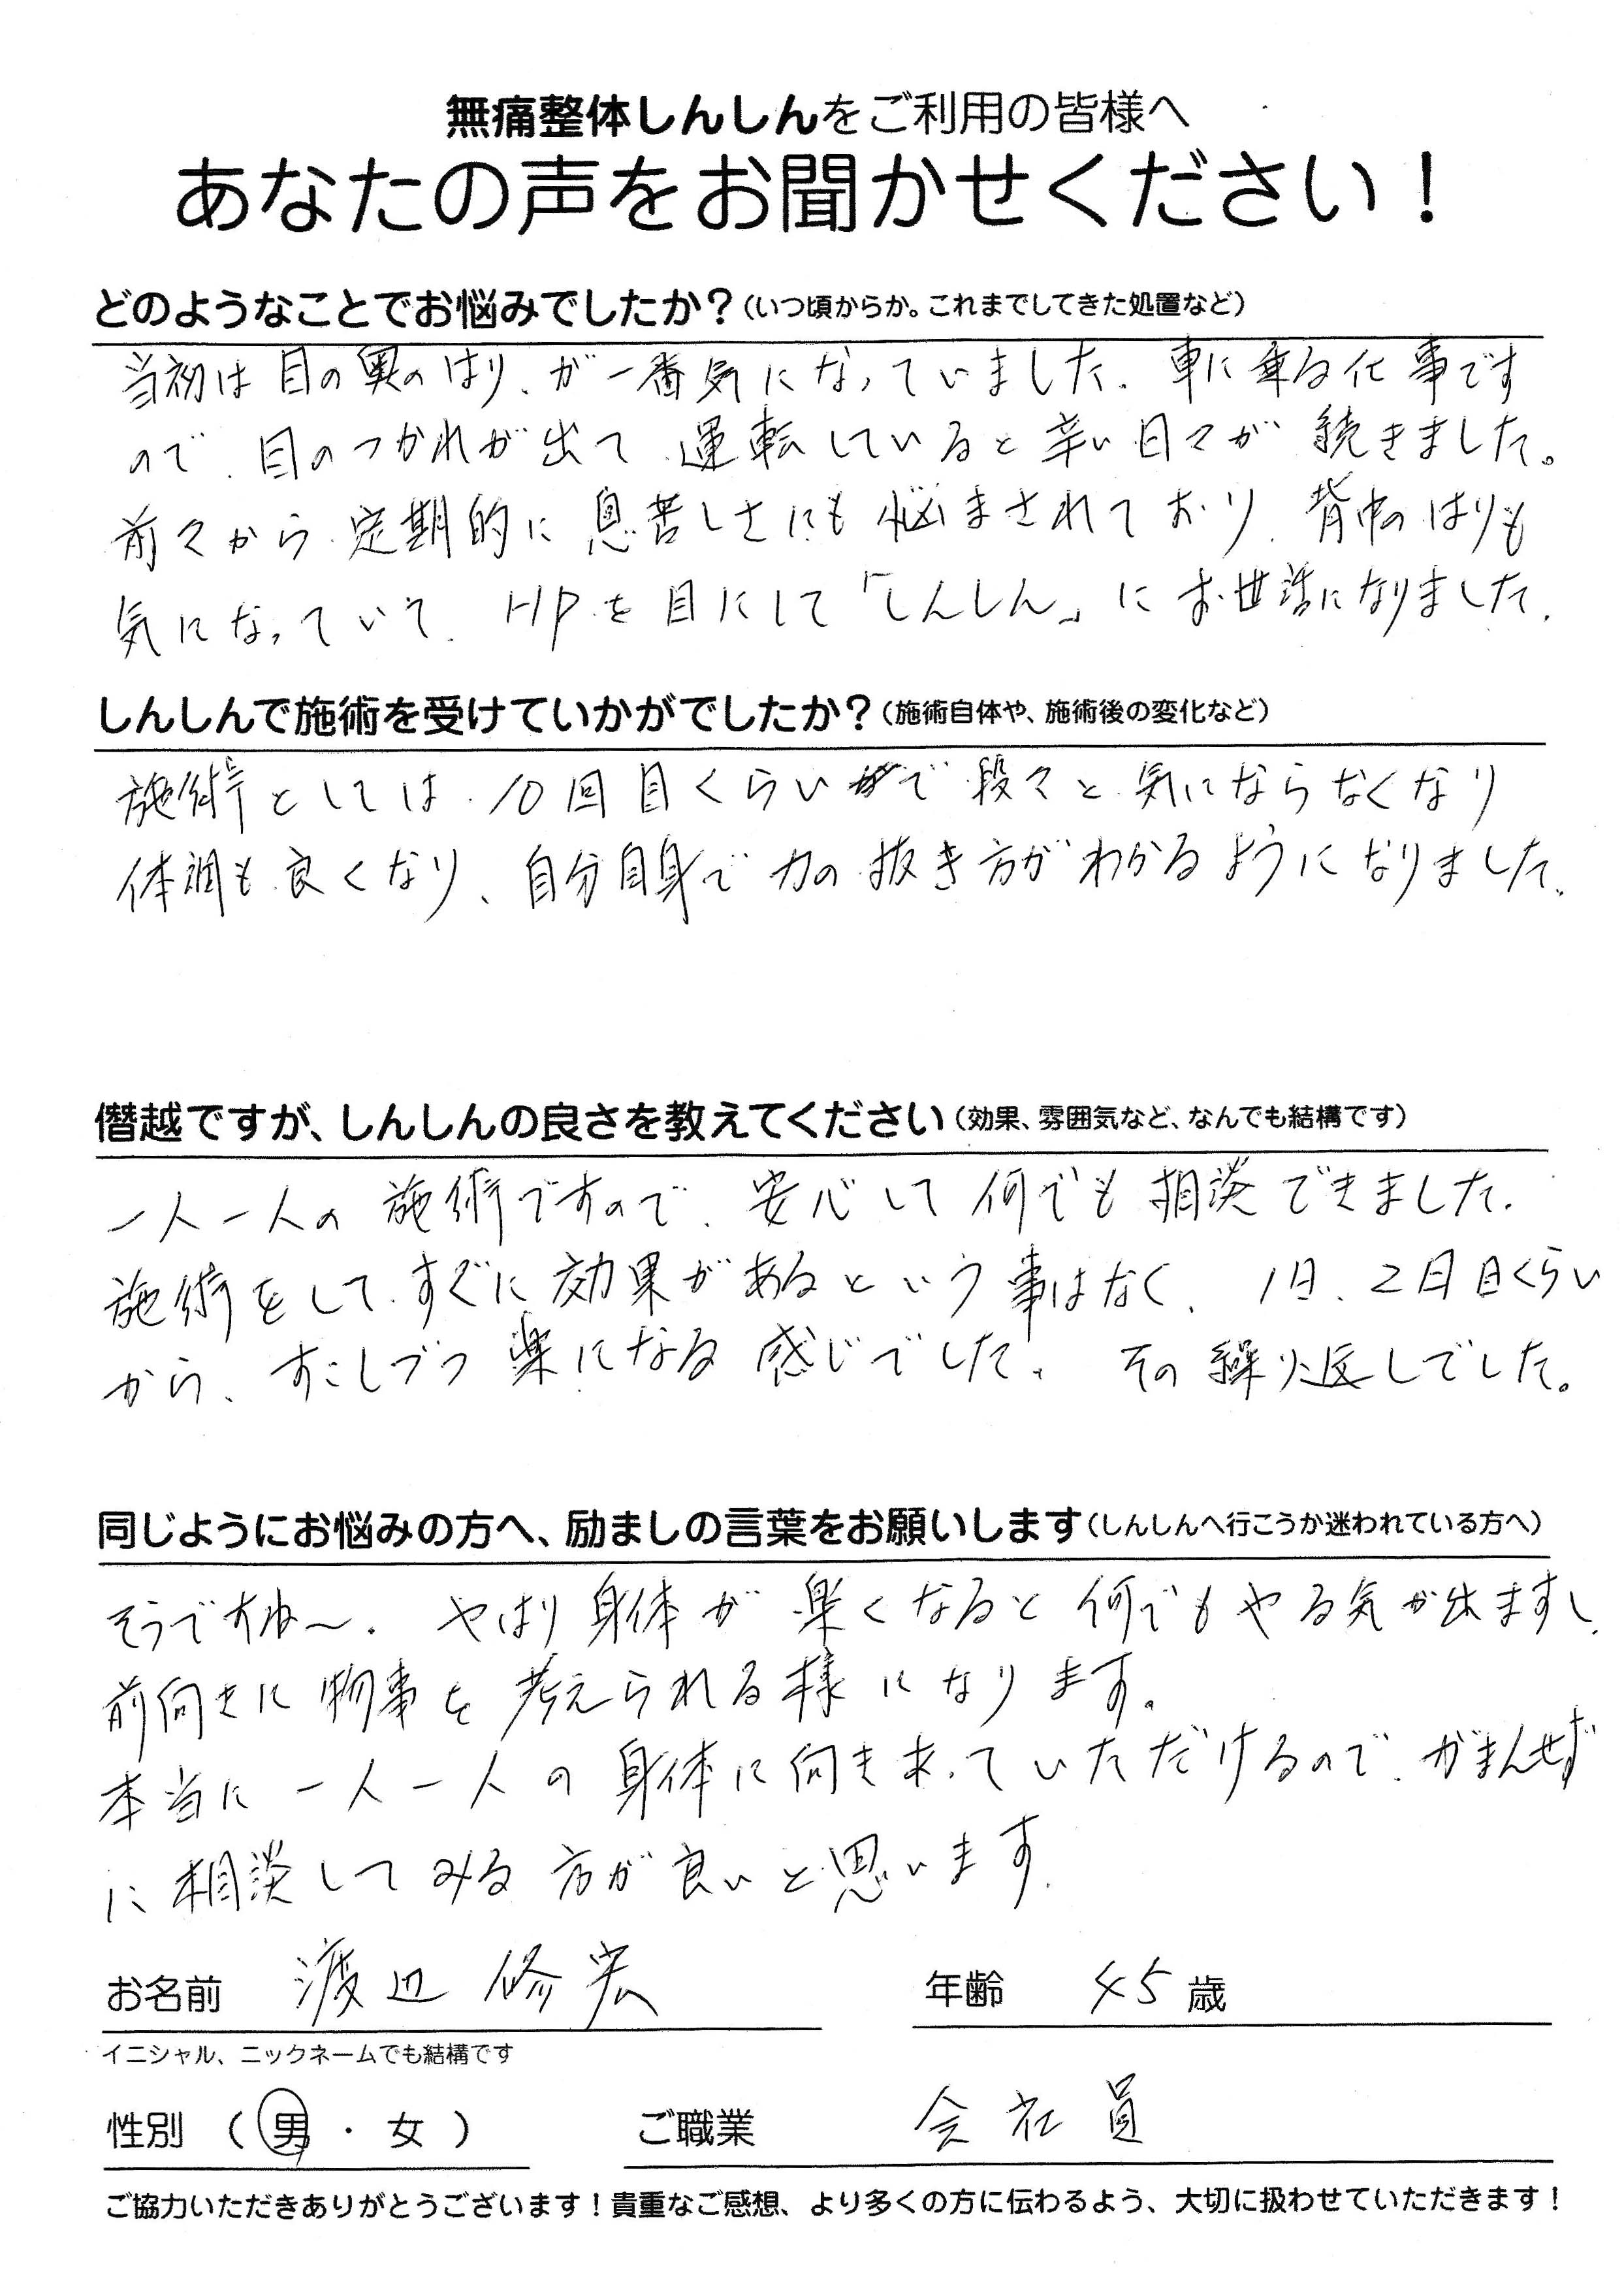 無痛整体しんしんをご利用の皆様へ
あなたの声をお聞かせください！
どのようなことでお悩みでしたか？（いつ頃からか。これまでしてきた処置など）
当初は目の奥のはり、が一番気になっていました。車に乗る仕事です
ので、目のつかれが出て運転していると辛い日々が続きました。
前々から定期的に息苦しさにも悩まされており、背中のはりも
気になっていて、HPを目にして「しんしん」にお世話になりました。
しんしんで施術を受けていかがでしたか？（施術自体や、施術後の変化など）
施術としては、10回目くらいで段々と気にならなくなり
体調も良くなり、自分自身で力の抜き方がわかるようになりました。
僭越ですが、しんしんの良さを教えてください（効果、雰囲気など、なんでも結構です）
一人一人の施術ですので、安心して何でも相談できました。
施術をしてすぐに効果があるという事はなく、1日、2日目くらい
から、すこしづつ楽になる感じでした。その繰り返しでした。
同じようにお悩みの方へ、励ましの言葉をお願いします（しんしんへ行こうか迷われている方へ）
そうですね〜。やはり身体が楽くなると何でもやる気が出ますし、
前向きに物事を考えられる様になります。
本当に一人一人の身体に向き来っていただけるので、がまんせず
に相談してみる方が良いと思います。
お名前 渡辺 修宏 年齢 45歳
イニシャル、ニックネームでも結構です
性別（男・女） ご職業 会社員
ご協力いただきありがとうございます！貴重なご感想、より多くの方に伝わるよう、大切に扱わせていただきます！